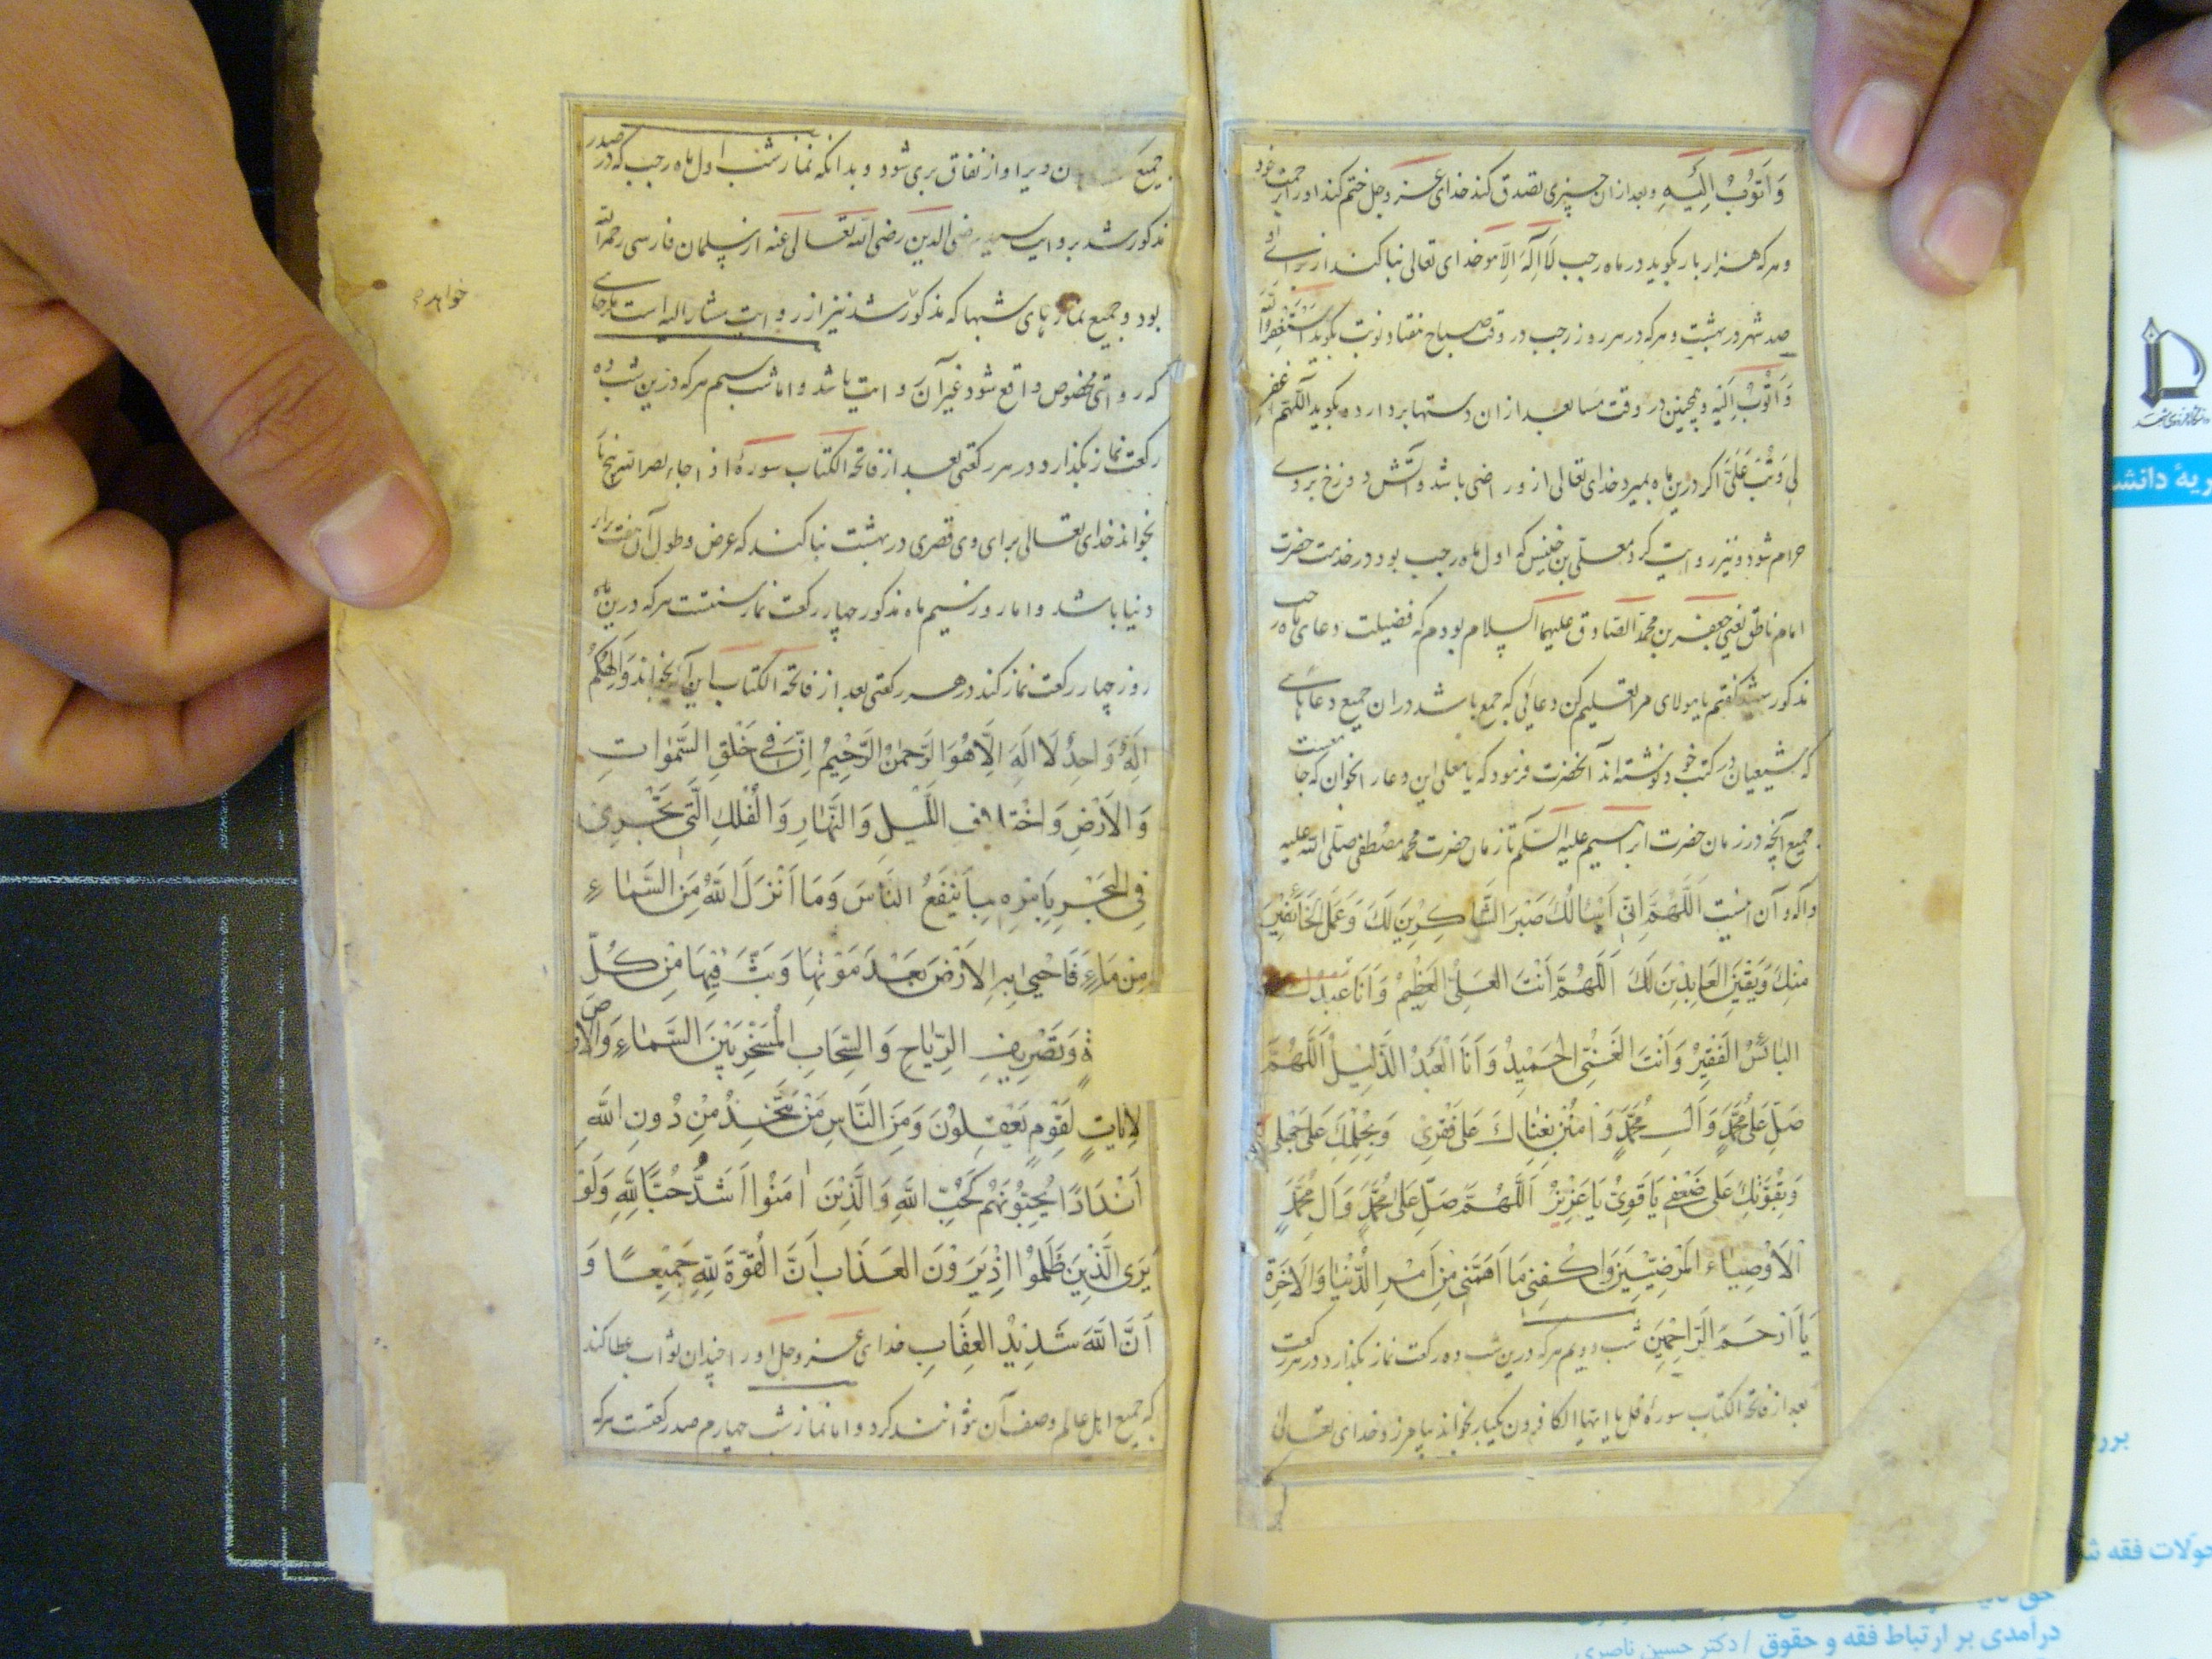 وَاَتُوْبُ اِلَیْهِ وبعد ازان چیزی تصدق کند خدای عز وجل ختم کند او را برحمت خود
وهرکه هزار بار بکوید در ماه رجب لَا اِلٰهَ اِلَّا هو خدای تعالی بنا کند از برای او
صد شهر در بهشت وهرکه در هر روز رجب در وقت صباح هفتاد نوبت بکوید اَسْتَغْفِرُ اللّٰهَ
وَاَتُوْبُ اِلَیْهِ وهمچنین در وقت مسا بعد ازان دستها بردارد ه بکوید اَللّٰهُمَّ اغْفِرْ
لِی وَتُبْ عَلَیَّ اکر درین ماه بمیرد خدای تعالی ازو راضی باشد وآتش دوزخ بروی
حرام شود ونیز روایت کرد معلی بن خنیس که اول ماه رجب بود در خدمت حضرت
امام ناطق یعنی جعفر بن محمد الصادق علیهما السلام بودم که فضیلت دعای ماه رجب
مذکور شد کفتم یا مولای مرا تعلیم کن دعائی که جمع باشد دران جمیع دعاهای
که شیعیان در کتب خود نوشته اند آنحضرت فرمود که یا معلی این دعا را بخوان که جامعست
جمیع آنچه در زمان حضرت ابراهیم علیه السلم تا زمان حضرت محمد مصطفی صلی الله علیه
وآله وآن اینست اَللّٰهُمَّ اِنِّی اَسْاَلُكَ صَبْرَ الشَّاکِرِیْنَ لَكَ وَعَمَلَ الْخَائِفِیْنَ
مِنْكَ وَیَقِیْنَ الْعَابِدِیْنَ لَكَ اَللّٰهُمَّ اَنْتَ الْعَلِیُّ الْعَظِیْمُ وَاَنَا عَبْدُكَ
الْبَائِسُ الْفَقِیْرُ وَاَنْتَ الْغَنِیُّ الْحَمِیْدُ وَاَنَا الْعَبْدُ الذَّلِیْلُ اَللّٰهُمَّ
صَلِّ عَلٰی مُحَمَّدٍ وَآلِ مُحَمَّدٍ وَامْنُنْ بِغِنَاكَ عَلٰی فَقْرِیْ وَبِحِلْمِكَ عَلٰی جَهْلِی
وَبِقُوَّتِكَ عَلٰی ضَعْفِی یَا قَوِیُّ یَا عَزِیْزُ اَللّٰهُمَّ صَلِّ عَلٰی مُحَمَّدٍ وَآلِ مُحَمَّدٍ
الْاَوْصِیَاءِ الْمَرْضِیِّیْنَ وَاکْفِنِی مَا اَهَمَّنِی مِنْ اَمْرِ الدُّنْیَا وَالْآخِرَةِ
یَا اَرْحَمَ الرَّاحِمِیْنَ شب دویم هرکه درین شب ده رکعت نماز بکذارد در هر رکعت
بعد از فاتحة الکتاب سورۀ قل یا ایها الکافرون یکبار بخواند بیامرزد خدای تعالی
جمیع دیرا واز نفاق بری شود وبدانکه نماز شب اول ماه رجب که در صدر
مذکور شد بروایت سید رضی الدین رضی الله تعالی عنه از سلمان فارسی رحمه الله
بود وجمیع نمازهای شبها که مذکور شد نیز از روایت مشار الیه است مکر جای
که روایتی مخصوص واقع شود غیر آن وایت باشد واما شب سیم هرکه درین شب ده
رکعت نماز بکذارد در هر رکعتی بعد از فاتحة الکتاب سورۀ اذا جاء نصر الله پنج بار
بخواند خدای تعالی برای وی قصری در بهشت بنا کند که عرض وطول آن هفت برابر
دنیا باشد واما روز سیم ماه مذکور چهار رکعت نماز سنتست هرکه درین ماه
روز چهار رکعت نماز کند در هر رکعتی بعد از فاتحة الکتاب این آیه بخواند وَاِلٰهُکُمْ
اِلٰهٌ وَاحِدٌ لَا اِلٰهَ اِلَّا هُوَ الرَّحْمٰنُ الرَّحِیْمُ اِنَّ فِی خَلْقِ السَّمٰوَاتِ
وَالْاَرْضِ وَاخْتِلَافِ اللَّیْلِ وَالنَّهَارِ وَالْفُلْكِ الَّتِی تَجْرِی
فِی الْبَحْرِ بِاَمْرِهِ بِمَا یَنْفَعُ النَّاسَ وَمَا اَنْزَلَ اللّٰهُ مِنَ السَّمَاءِ
مِنْ مَاءٍ فَاَحْیٰی بِهِ الْاَرْضَ بَعْدَ مَوْتِهَا وَبَثَّ فِیْهَا مِنْ کُلِّ
وَتَصْرِیْفِ الرِّیَاحِ وَالسَّحَابِ الْمُسَخَّرِ بَیْنَ السَّمَاءِ وَالْاَرْضِ
لَاٰیَاتٍ لِقَوْمٍ یَعْقِلُوْنَ وَمِنَ النَّاسِ مَنْ یَتَّخِذُ مِنْ دُوْنِ اللّٰهِ
اَنْدَادًا یُحِبُّوْنَهُمْ کَحُبِّ اللّٰهِ وَالَّذِیْنَ اٰمَنُوْا اَشَدُّ حُبًّا لِلّٰهِ وَلَوْ
یَرَی الَّذِیْنَ ظَلَمُوْا اِذْ یَرَوْنَ الْعَذَابَ اَنَّ الْقُوَّةَ لِلّٰهِ جَمِیْعًا وَ
اَنَّ اللّٰهَ شَدِیْدُ الْعِقَابِ خدای عز وجل او را چندان ثواب عطا کند
که جمیع اهل عالم وصف آن نتوانند کرد واما نماز شب چهارم صد رکعتست هرکه
ریۀ دانش
حولات فقه
درآمدی بر ارتباط فقه و حقوق / دکتر حسین ناصری